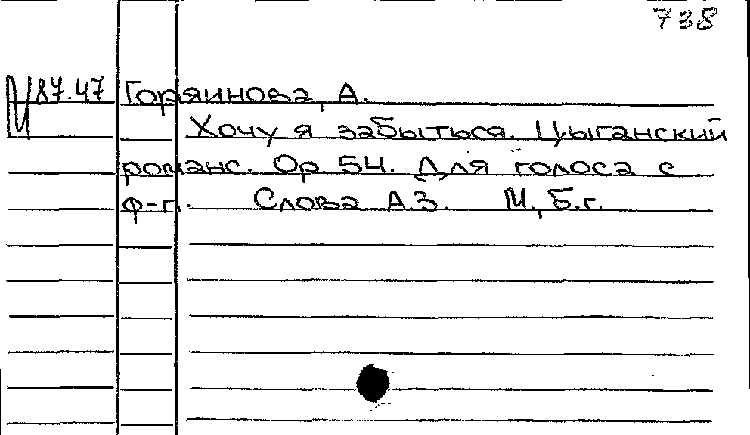 738
М 87.47 Горяинова, А.
Хочу я забыться. Цыганский
романс. Ор 54. Для голоса с
ф-п. Слова А.З. М, Б.г.